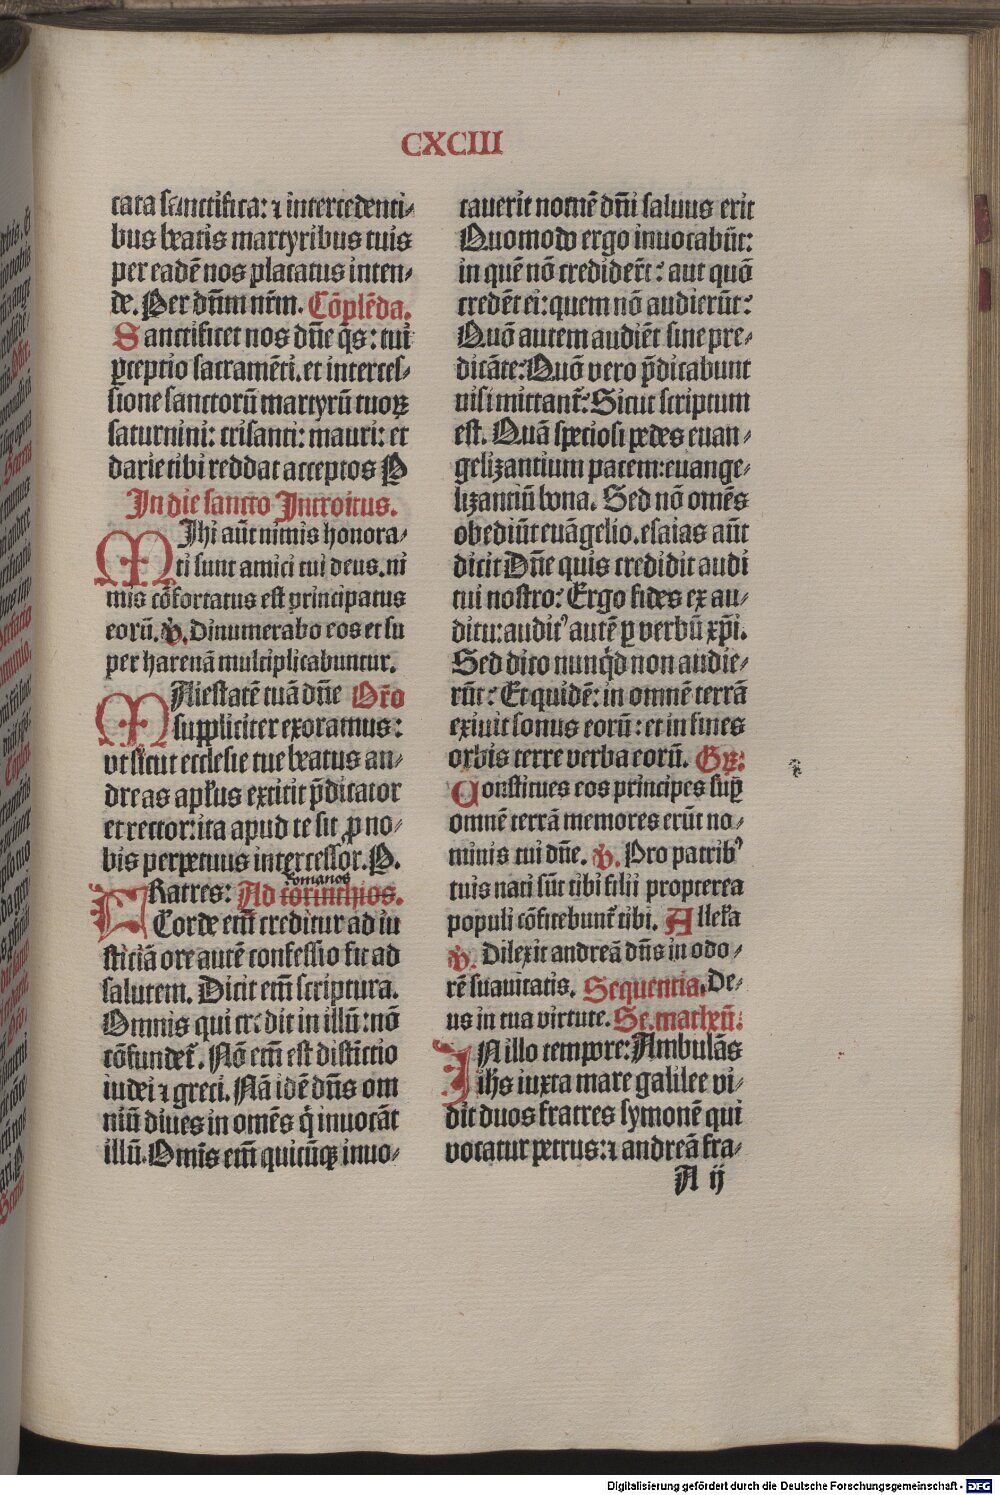 CXCIII
cata sanctifica: ⁊ intercedenti⸗
bus beatis martyribus tuis
per eadē nos placatus inten⸗
de. Per dñm nr̃m. Cōplēda.
Sanctificet nos dñe q̄s: tui
ꝑceptio sacramēti. et interces⸗
sione sanctorū martyrū tuoꝝ
saturnini: crisanti: mauri: et
darie tibi reddat acceptos P
In die sancto Introitus.
MIhi aūt nimis honora⸗
ti sunt amici tui deus. ni
mis cōfortatus est principatus
eorū. ℣. Dinumerabo eos et su
per harenā multiplicabuntur.
MAiestatē tuā dñe Or̃o
suppliciter exoramus:
vt sicut ecclesie tue beatus an⸗
dreas apl̃us extitit p̄dicator
et rector: ita apud te sit ꝓ no⸗
bis perpetuus intercessor. P.
romanos
FRatres: Ad corinthios.
Corde em̄ creditur ad iu
sticiā ore autē confessio fit ad
salutem. Dicit em̄ scriptura.
Omnis qui credit in illū: nō
cōfundet᷑. Nō em̄ est distīctio
iudei ⁊ greci. Nā idē dñs om
niū diues in omēs q̇ inuocāt
illū. Omīs em̄ quicūqꝫ inuo⸗
cauerit nomē dñi saluus erit
Quomodo ergo inuocabūt:
in quē nō credider̄t: aut quō
credēt ei: quem nō audierūt:
Quō autem audiēt sine pre⸗
dicāte: Quō vero p̄dicabunt
nisi mittant᷑: Sicut scriptum
est. Quā speciosi pedes euan⸗
gelizantium pacem: euange⸗
lizanciū bona. Sed nō omēs
obediūt euāgelio. esaias aūt
dicit Dñe quis credidit audi
tui nostro: Ergo fides ex au⸗
ditu: audit᷒ autē ꝑ verbū xp̄i.
Sed dico nunqͥd non audie⸗
rūt: Et quidē: in omnē terrā
exiuit sonus eorū: et in fines
orbis terre verba eorū. Gr̃:
Constitues eos principes sup̄
omnē terrā memores erūt no⸗
minis tui dñe. ℣. Pro patrib᷒
tuis nati sūt tibi filii propterea
populi cōfitebunt᷑ tibi. Alleľa
℣. Dilexit andreā dñs in odo⸗
rē suauitatis. Sequentia. De⸗
us in tua virtute. Se. matheū:
IN illo tempore: Ambulās
ih̄s iuxta mare galilee vi⸗
dit duos fratres symonē qui
vocatur petrus: ⁊ andreā fra⸗
A ij
Digitalisierung gefördert durch die Deutsche Forschungsgemeinschaft - DFG